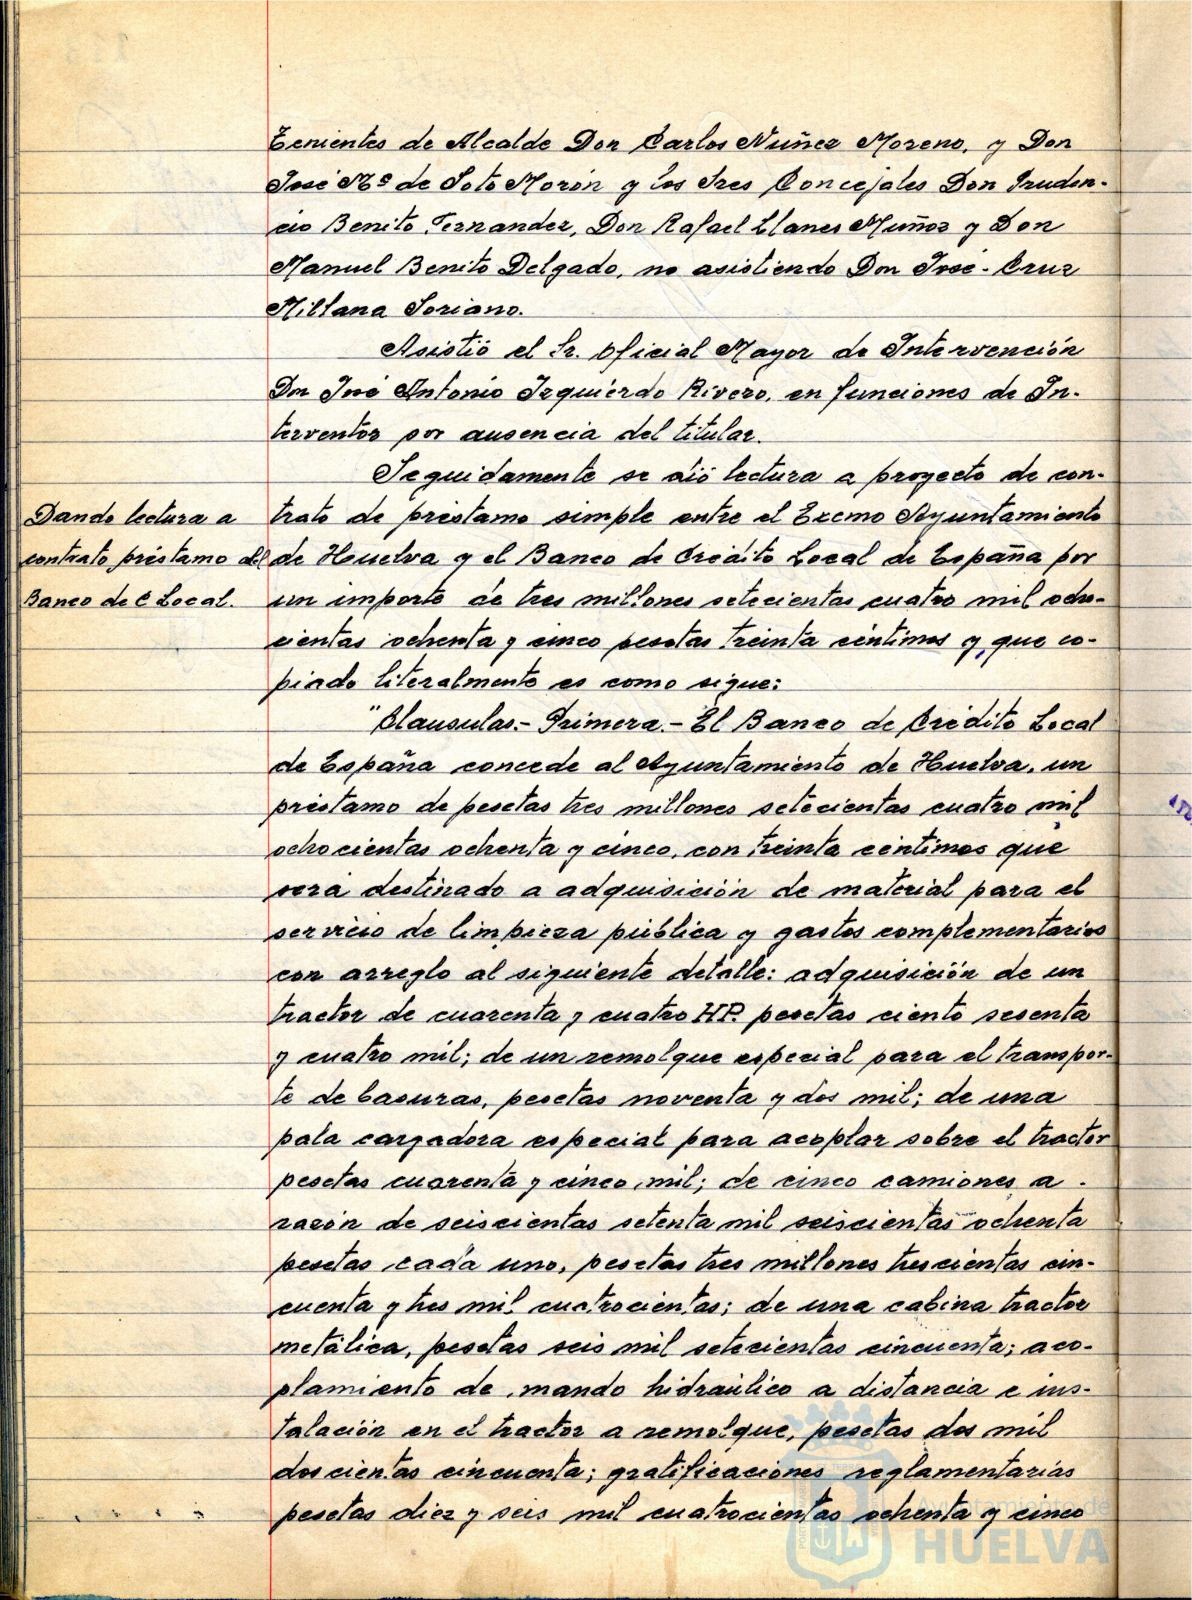 Tenientes de Alcalde Don Carlos Nuñez Moreno, y Don
José Mª de Soto Morón y los Sres Concejales Don Pruden-
cio Benito Fernandez, Don Rafael Llanes Muñoz y Don
Manuel Benito Delgado, no asistiendo Don José-Cruz
Millana Soriano.
Asistió el Sr. Oficial Mayor de Intervención
Don José Antonio Izquierdo Rivero, en funciones de In-
terventor por ausencia del titular.
Seguidamente se dió lectura a proyecto de con-
Dando lectura a
contrato préstamo del
Banco de C Local.
trato de préstamo simple entre el Excmo Ayuntamiento
de Huelva y el Banco de Crédito Local de España por
un importe de tres millones setecientas cuatro mil ocho-
cientas ochenta y cinco pesetas treinta céntimos y que co-
piado literalmente es como sigue:
"Clausulas.- Primera.- El Banco de Crédito Local
de España concede al Ayuntamiento de Huelva, un
préstamo de pesetas tres millones setecientas cuatro mil
ochocientas ochenta y cinco, con treinta céntimos que
será destinado a adquisición de material para el
servicio de limpieza pública y gastos complementarios
con arreglo al siguiente detalle: adquisición de un
tractor de cuarenta y cuatro HP. pesetas ciento sesenta
y cuatro mil; de un remolque especial para el transpor-
te de basuras, pesetas noventa y dos mil; de una
pala cargadora especial para acoplar sobre el tractor
pesetas cuarenta y cinco mil; de cinco camiones a
razón de seiscientas setenta mil seiscientas ochenta
pesetas cada uno, pesetas tres millones trescientas cin-
cuenta y tres mil cuatrocientas; de una cabina tractor
metálica, pesetas seis mil setecientas cincuenta; aco-
plamiento de mando hidraúlico a distancia e ins-
talación en el tractor a remolque, pesetas dos mil
doscientas cincuenta; gratificaciones reglamentarias
pesetas diez y seis mil cuatrocientas ochenta y cinco
Ayuntamiento de
HUELVA